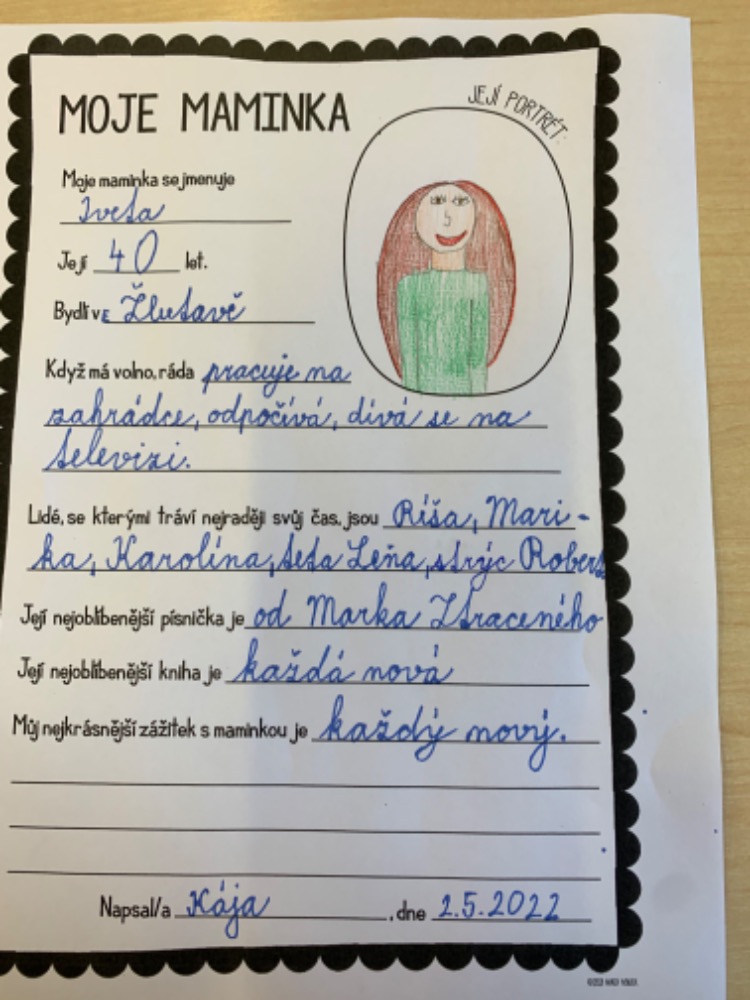 MOJE MAMINKA
JEJÍ PORTRÉT:
Moje maminka se jmenuje
Iveta
Její 40 let.
Bydlí v E Žlutavě
Když má volno, ráda pracuje na
zahrádce, odpočívá, dívá se na
televizi.
Lidé, se kterými tráví nejraději svůj čas, jsou Ríša, Mari-
ka, Karolína, teta Leňa, strýc Robert
Její nejoblíbenější písnička je od Marka Ztraceného
Její nejoblíbenější kniha je každá nová
Můj nejkrásnější zážitek s maminkou je každý nový.
Napsal/a Kája, dne 2.5.2022